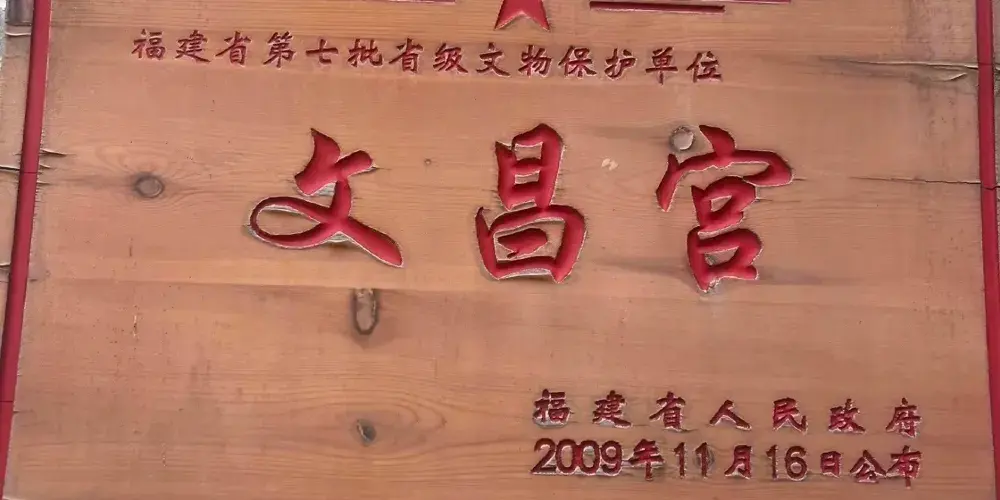 福建省第七批省级文物保护单位
文昌宫
福建省人民政府
2009年11月16日公布